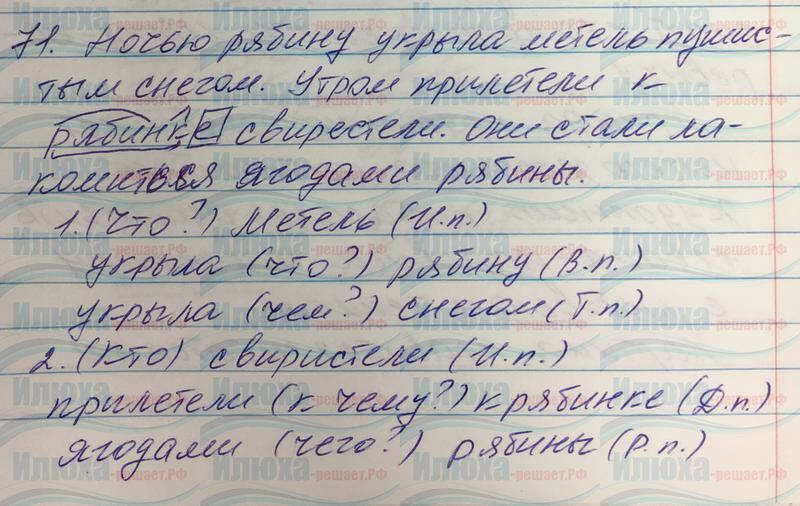 71. Ночью рябину укрыла метель пушис-
тым снегом. Утром прилетели к
рябинке свирестели. Они стали ла-
комиться ягодами рябины.
1. (Что?) Метель (И.п.)
укрыла (что?) рябину (В.п.)
укрыла (чем?) снегом (Т.п.)
2. (Кто) свиристели (И.п.)
прилетели (к чему?) к рябинке (Д.п.)
ягодами (чего?) рябины (Р.п.)
Илюха-решает.РФ